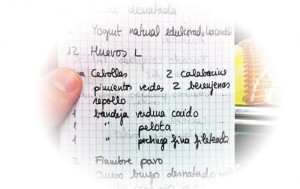 desnatada
Yogurt natural edulcorado
12 Huevos L
Cebollas 2 calabacines
pimientos verdes 2 berenjenas
repollo
1 bandeja redona caído
1 " pelota
1 " pechuga fina fileteada
2 Fiambre pavo
Queso burgo desnatado